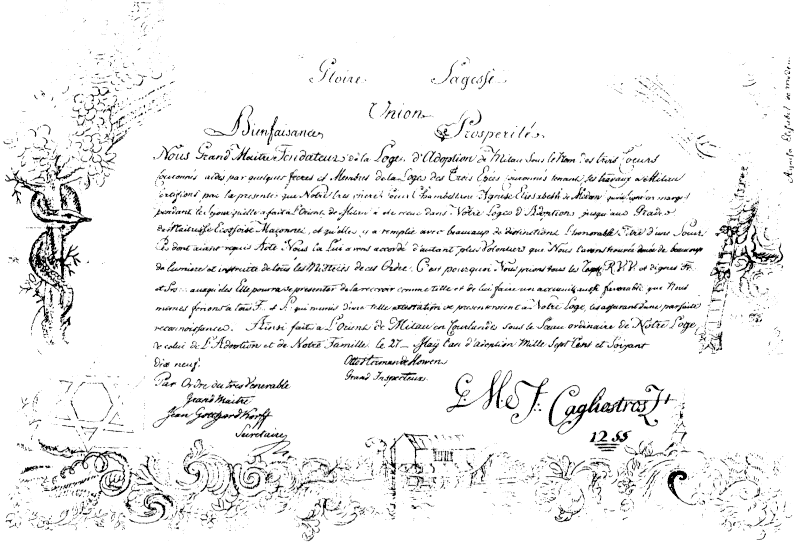 Gloire Sagesse
Union
Bienfaisance Prosperité
Nous Grand Maitre Fondateur de la Loge d'Adoption de Mitau sous le Nom des trois Coeurs
Couronnés aidés par quelques freres et Membres de la Loges des Trois Epées Couronnés tenant ses travaux a Mitau
certifions par la presente que Notre tres chere Soeur Chambellan Agnese Elisabeth de Medem qui a signé en marge
pendant le sejour qu'elle a fait a l'Orient de Mitau a été recue dans Notre Loges d'Adoptions jusqu'aux Grade
de Maitresse Ecossoise Maçonne, et qu'elle y a remplie avec beaucoup de distinctions l'honorable
dont aiant requis Acte Nous la Lui avons accordé d'autant plus Volontier que Nous l'avons trouvée douée de beaucoup
de lumieres et instruite de touts les Misteres de ces Ordre. C'est pourquoi Nous prions tous les R.V.V. et dignes Fr.
et auxquels Elle pourra se presenter de la recevoir comme telle et de lui faire un accueil aussi favorable que Nous
memes ferons a tous F. et S. qui munis d'une telle attestation se presenteront a Notre Loge, les assurant d'une parfaite
reconnoissance. Ainsi fait a L'Orient de Mitau en Courlande sous le Sceau ordinaire de Notre Loge
& celui de L'Adoption et de Notre Famille le 27 May l'an d'adoption Mille Sept Cens et Soixant
Dix neuf.
Otto Herman de Howen
Grand Inspecteur
Par Ordre du tres Venerable
Grand Maitre
Secretaire
G. M. & F. Cagliostros
1255